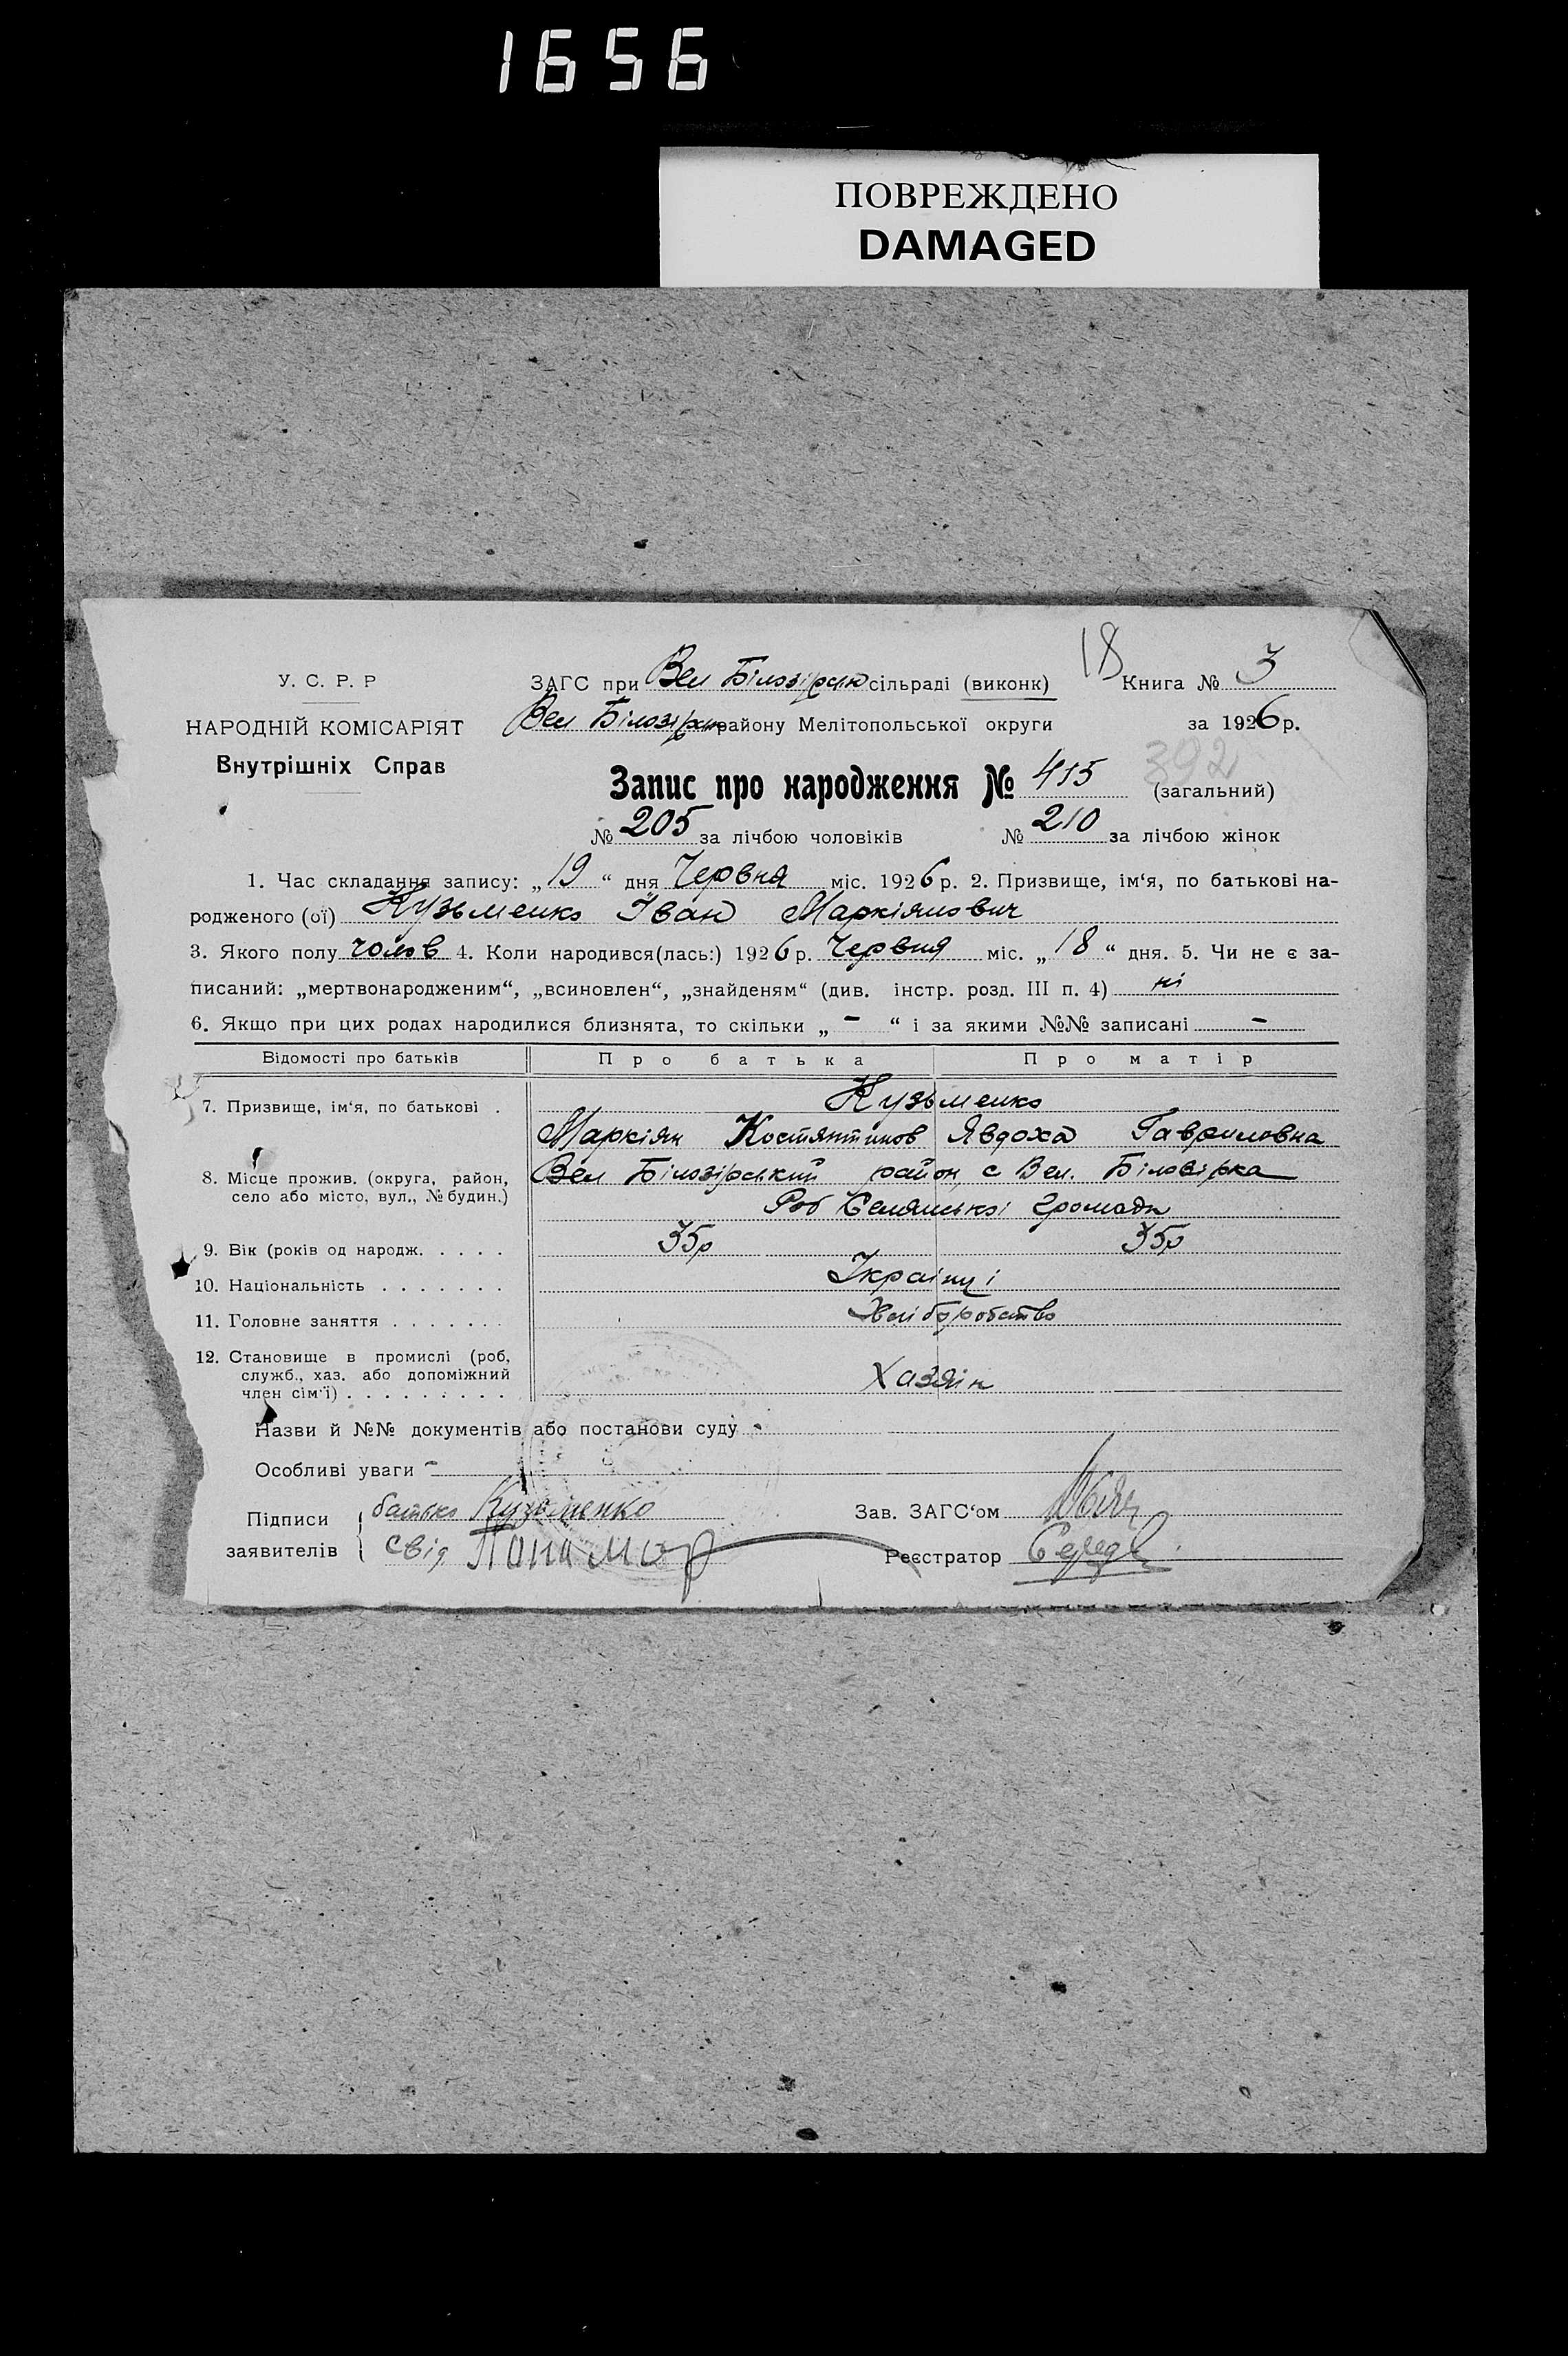 1656
ПОВРЕЖДЕНО
DAMAGED
18
У. С. Р. Р
ЗАГС при Вел Білозірськ сільраді (виконк)
Книга № 3
НАРОДНІЙ КОМІСАРІЯТ
Вел Білозірськ району Мелітопольської округи
за 1926 р.
Внутрішніх Справ
392
Запис про народження № 415 (загальний)
№ 205 за лічбою чоловіків № 210 за лічбою жінок
1. Час складання запису: „19“ дня Червня міс. 1926 р. 2. Призвище, ім‘я, по батькові на-
родженого (ої) Кузьменко Іван Маркіянович
3. Якого полу чолов 4. Коли народився(лась:) 1926 р. Червня міс. „18“ дня. 5. Чи не є за-
писаний: „мертвонародженим“, „всиновлен“, „знайденям“ (див. інстр. розд. III п. 4) ні
6. Якщо при цих родах народилися близнята, то скільки „ - “ і за якими №№ записані -
Відомості про батьків Про батька Про матір
7. Призвище, ім‘я, по батькові . Кузьменко
Маркіян Костянтинов Явдоха Гавриловна
8. Місце прожив. (округа, район, Вел Білозірський район с Вел. Білозірка
село або місто, вул., № будин.)
Громади
9. Вік (років од народж. . . . . 35р 35р
10. Національність . . . . . . . Українці
11. Головне заняття . . . . . . . Хліборобство
12. Становище в промислі (роб,
служб., хаз. або допоміжний
член сім‘ї) . . . . . . . . . Хазяїн
Назви й №№ документів або постанови суду -
Особливі уваги -
Підписи батько Кузьменко Зав. ЗАГС‘ом
заявителів свід Понамор Реєстратор